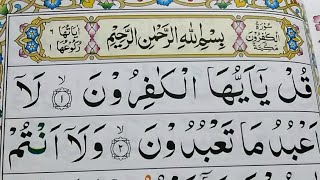 سُوْرَةُ الْكٰفِرُوْنَ مَكِّيَّةٌ
بِسْمِ اللهِ الرَّحْمٰنِ الرَّحِيْمِ
اٰيَاتُهَا ٦ رُكُوْعُهَا ١
قُلْ يٰۤاَيُّهَا الْكٰفِرُوْنَ ۙ﴿١﴾ لَاۤ
اَعْبُدُ مَا تَعْبُدُوْنَ ۙ﴿٢﴾ وَلَاۤ اَنْتُمْ